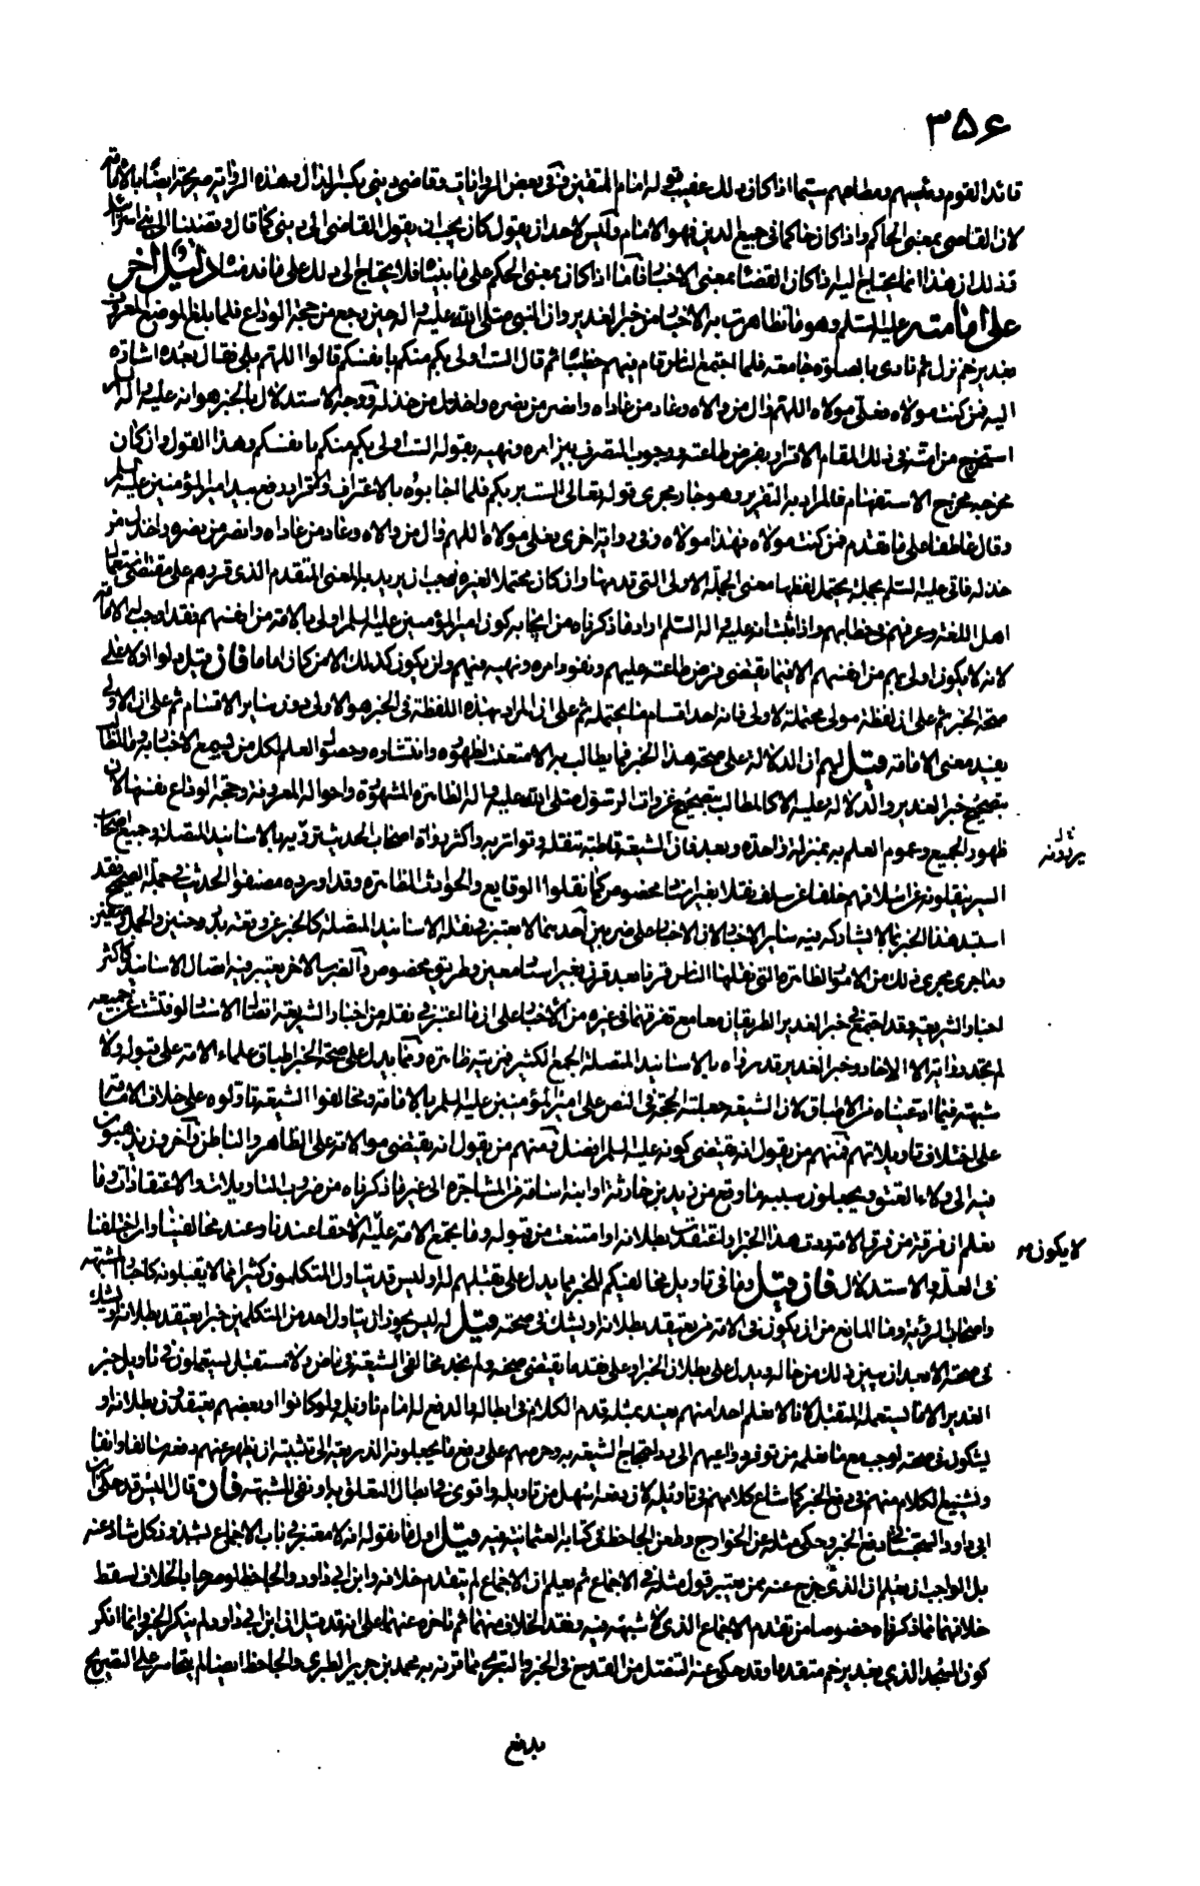 ۳۵۶
قائد القوم ورئيسهم ومطاعهم سيما اذا كان ذلك عقيب قوله امام المتقين وفى بعض الروايات وقاضى دينى بكسر الدال وهذه الرواية صريحة ايضا بالامامة
لان القاضى بمعنى الحاكم واذا كان حاكما فى جميع الدين فهو الامام وليس لاحد ان يقول كان يجب ان يقول القاضى الى دينى كما قال وقضينا الى بنى اسرائيل
وذلك ان هذا انما يحتاج اليه اذا كان القضاء بمعنى الاخبار فاما اذا كان بمعنى الحكم على ما بيناه فلا يحتاج الى ذلك على ما قدمناه دليل اخر
على امامته عليه السلم وهو ما تظاهرت به الاخبار من خبر الغدير وان النبى صلى الله عليه واله حين رجع من حجة الوداع فلما بلغ الموضع المعروف
بغدير خم نزل ثم نادى بالصلوة جامعة فلما اجتمع الناس قام فيهم خطيبا ثم قال الست اولى بكم منكم بانفسكم قالوا اللهم بلى فقال بعده اشارة
اليه فمن كنت مولاه فعلى مولاه اللهم وال من والاه وعاد من عاداه وانصر من نصره واخذل من خذله ووجه الاستدلال بالخبر هو انه عليه واله السلم
استخرج من امته فى ذلك المقام الاقرار بفرض طاعته ووجوب التصرف بين امره ونهيه بقوله الست اولى بكم منكم بانفسكم وهذا القول وان كان
مخرجه مخرج الاستفهام فالمراد به التقرير وهو جار مجرى قوله تعالى الست بربكم فلما اجابوه بالاعتراف والاقرار رفع بيد امير المؤمنين عليه السلم
وقال عاطفا على ما تقدم فمن كنت مولاه فهذا مولاه وفى رواية اخرى فعلى مولاه اللهم وال من والاه وعاد من عاداه وانصر من نصره واخذل من
خذله فاتى عليه السلم بجملة يحتمل لفظها معنى الجملة الاولى التى قدمها وان كان محتملا لغيره فوجب ان يريد بها المعنى المتقدم الذى قررهم على مقتضى استعمال
اهل اللغة وعرفهم فى خطابهم واذا ثبت انه عليه واله السلم اراد ما ذكرناه من ايجابه كون امير المؤمنين عليه السلم اولى بالامة من انفسهم فقد اوجب له الامامة
لانه لا يكون اولى بهم من انفسهم الا فيما يقتضى فرض طاعته عليهم ونفوذ امره ونهيه فيهم ولن يكون كذلك الا من كان اماما فان قيل دلوا اولا على
صحة الخبر ثم على ان لفظة مولى محتملة لاولى فانه احد اقسام ما يحتمله ثم على ان المراد بهذه اللفظة فى الخبر هو الاولى دون ساير الاقسام ثم على ان الاولى
يفيد معنى الامامة قيل لهم ان الدلالة على صحة هذا الخبر فما يطالب به الا متعنت لظهوره وانتشاره وحصول العلم لكل من يسمع الاخبار به وما المطالب
بتصحيح خبر الغدير والدلالة عليه الا كالمطالب بتصحيح غزوات الرسول صلى الله عليه واله الظاهرة المشهورة واحواله المعروفة وحجة الوداع نفسها لان
ظهور الجميع وعموم العلم به بمنزلة واحدة وبعد فان الشيعة قاطبة تنقله وتواتر به واكثر رواة اصحاب الحديث ترويه بالاسانيد المتصلة وجميع اصحاب
السير ينقلونه عن اسلافهم خلفا عن سلف نقلا بغير اسناد مخصوص كما نقلوا الوقايع والحوادث الظاهرة وقد اورده مصنفوا الحديث فى جملة الصحيح فقد
استبد هذا الخبر بما لا يشاركه فيه ساير الاخبار لان الاخبار على ضربين احدهما لا يعتبر فى نقله الاسانيد المتصلة كالخبر عن وقعة بدر وحنين والجمل وصفين
وما جرى مجرى ذلك من الامور الظاهرة التى نقلها الناس قرنا بعد قرن بغير اسناد معين وطريق مخصوص والضرب الاخر يعتبر فيه اتصال الاسانيد كاكثر
اخبار الشريعة وقد اجتمع فى خبر الغدير الطريقان معا مع تفرقهما فى غيره من الاخبار على ان ما اعتبر فى نقله من اخبار الشريعة اتصال الاسناد لو فتشت عن جميعه
لم تجد رواته الا الاحاد وخبر الغدير قد رواه بالاسانيد المتصلة الجمع الكثير فمزيته ظاهرة ومما يدل على صحة الخبر اطباق علماء الامة على قبوله ولا
شبهة فيما ادعيناه من الاطباق لان الشيعة جعلته الحجة فى النص على امير المؤمنين عليه السلم بالامامة ومخالفوا الشيعة تاولوه على خلاف الامامة
على اختلاف تاويلاتهم فمنهم من يقول انه يقتضى كونه عليه السلم افضل ومنهم من يقول انه يقتضى موالاته على الظاهر والباطن واخرون يذهبون
فيه الى ولاء العتق ويجعلون سببه ما وقع من زيد بن حارثة او ابنه اسامة من المشاجرة الى غير ما ذكرناه من ضروب التاويلات والاعتقادات وما
نعلم ان فرقة من فرق الامة ردت هذا الخبر او اعتقدت بطلانه او امتنعت من قبوله وما يجمع الامة عليه الا حقا عندنا وعند مخالفينا وان اختلفنا
فى العلة والاستدلال فان قيل وما فى تاويل مخالفيكم للخبر ما يدل على تقبلهم له او ليس قد يتاول المتكلمون كثيرا مما لا يقبلونه كاخبار المشبهة
واصحاب الرؤية وما المانع من ان يكون فى الامة من يعتقد بطلانه او يشك فى صحته قيل له ليس يجوز ان يتاول احد من المتكلمين خبرا يعتقد بطلانه او يشك
فى صحته الا بعد ان يبين ذلك من حاله ويدل على بطلان الخبر او على فقد ما يقتضى صحته ولم نجد مخالفى الشيعة فى ماض ولا مستقبل يستعملون فى تاويل خبر
الغدير الا ما يستعمله المتقبل لانا لا نعلم احدا منهم يعتد بمثله قدم الكلام فى ابطاله والدفع له امام تاويله ولو كانوا او بعضهم يعتقدون بطلانه او
يشكون فى صحته لوجب مع ما نعلمه من توفر دواعيهم الى رد احتجاج الشيعة به وحرصهم على دفع ما يجعلونه الذريعة الى تثبيته ان يظهر عنهم دفعه سالفا وانفا
وتشيع الكلام منهم فى دفع الخبر كما شاع كلامهم فى تاويله لان دفعه اسهل من تاويله واقوى فى ابطال التعلق به وانفى للشبهة فان قال اليس قد حكى ابن
ابى داود السجستانى دفع الخبر وحكى مثله عن الخوارج وطعن الجاحظ فى كتابه العثمانية فيه قيل اول ما نقوله انه لا معتبر فى باب الاجماع بشذوذ كل شاذ عنه
بل الواجب ان يعلم ان الذى خرج عنه ممن يعتبر قول مثله فى الاجماع ثم يعلم ان الاجماع لم يتقدم خلافه وابن ابى داود والجاحظ لو صرحا بالخلاف لسقط
خلافهما بما ذكرناه خصوصا من تقدم الاجماع الذى لا شبهة فيه وفقد الخلاف منهما ثم تاخره عنهما على انه قد قيل ان ابن ابى داود لم ينكر الخبر وانما انكر
كون المسجد الذى بغدير خم متقدما وقد حكى عنه التنصل من القدح فى الخبر والتبرى مما قرفه به محمد بن جرير الطبرى والجاحظ ايضا لم يتجاسر على التصريح
يردونه
لا يكون
بدفع